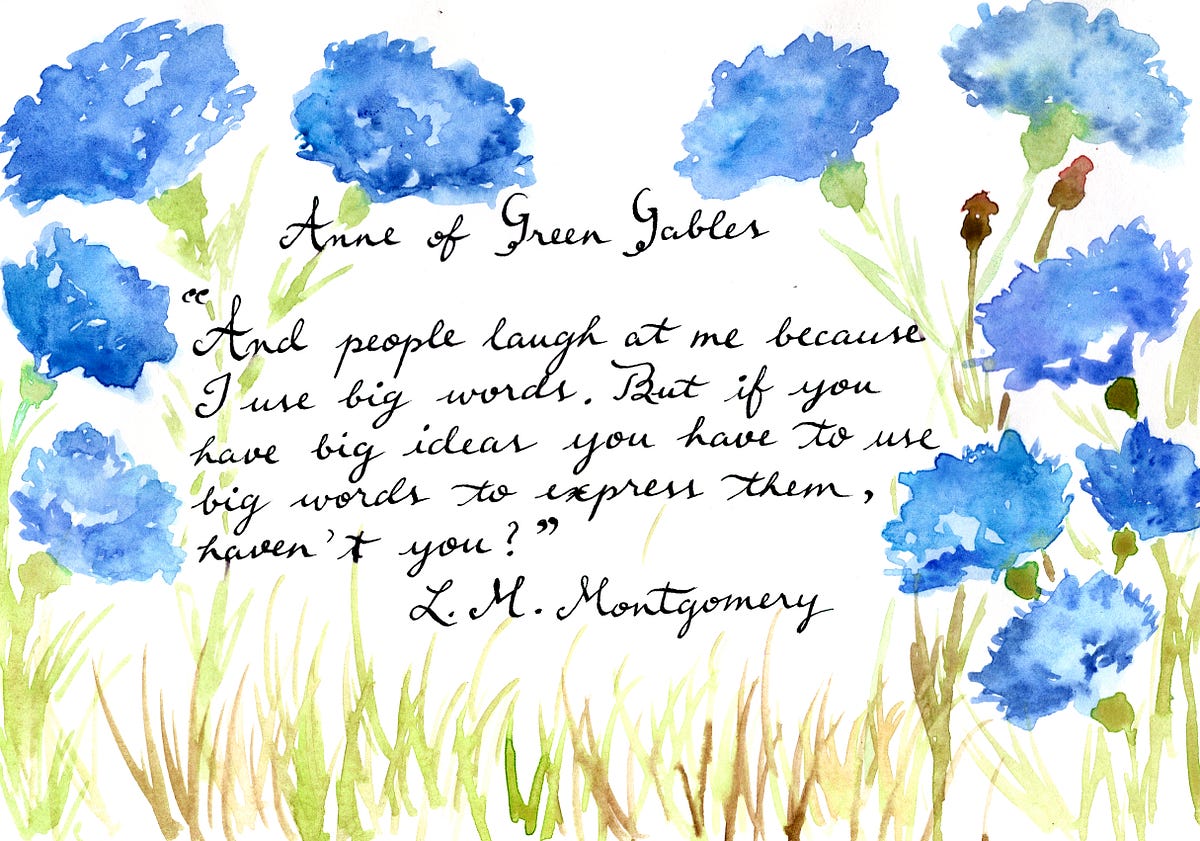 Anne of Green Gables
“And people laugh at me because
I use big words. But if you
have big ideas you have to use
big words to express them,
haven't you?”
L. M. Montgomery